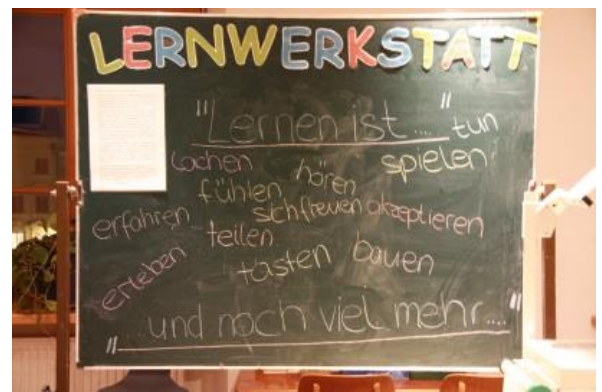 LERNWERKSTATT
"Lernen ist...."
tun
lachen
hören
spielen
fühlen
erfahren
sich freuen
akzeptieren
teilen
erleben
tasten
bauen
"....und noch viel mehr...."